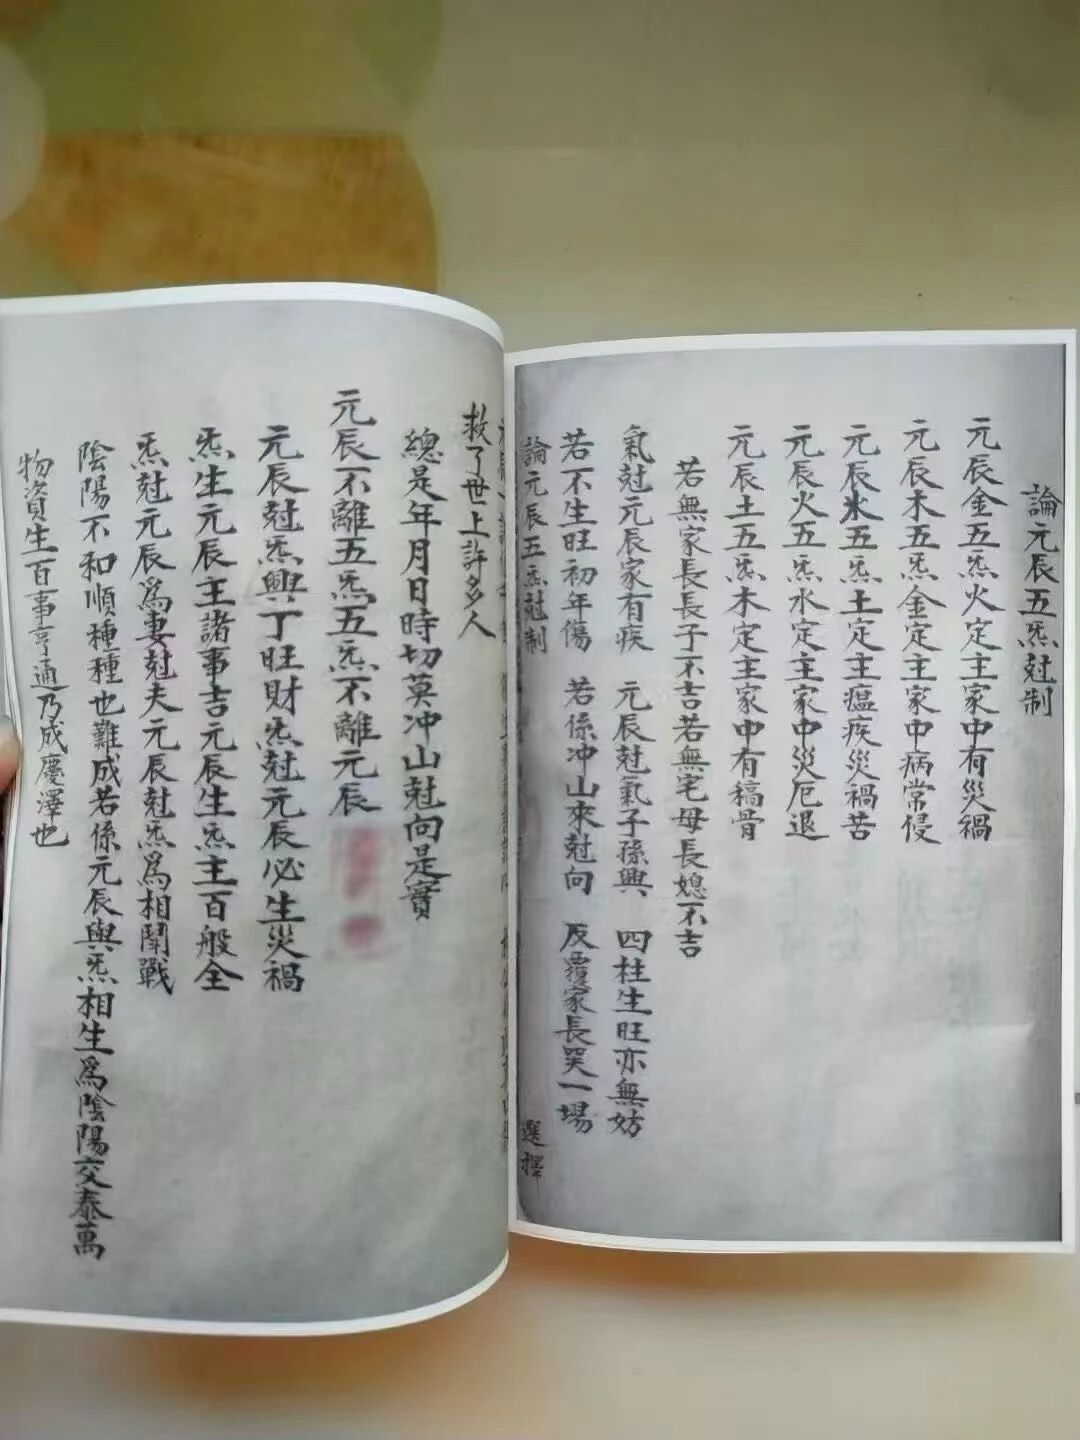 論元辰五炁尅制
元辰金五炁火定主家中有災禍
元辰木五炁金定主家中病常侵
元辰水五炁土定主瘟疾災禍苦
元辰火五炁水定主家中災厄退
元辰土五炁木定主家中有稿骨
若無家長長子不吉若無宅母長媳不吉
氣尅元辰家有疾 元辰尅氣子孫興 四柱生旺亦無妨
若不生旺初年傷 若係冲山來尅向 反覆家長哭一場
論元辰五炁尅制 選擇
救了世上許多人
總是年月日時切莫冲山尅向是實
元辰不離五炁五炁不離元辰
元辰尅炁興丁旺財炁尅元辰必生災禍
炁生元辰主諸事吉元辰生炁主百般全
炁尅元辰為妻尅夫元辰尅炁為相鬪戰
陰陽不和順種種也難成若係元辰與炁相生為陰陽交泰萬
物資生百事亨通乃成慶澤也